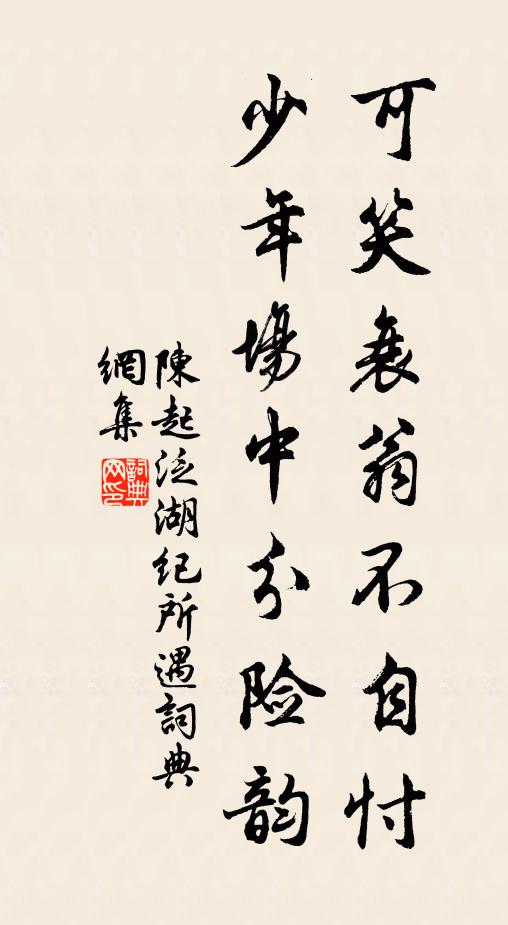 可笑衰翁不自忖
少年場中分险韵
陳起泛湖纪所遇詞典
網集
詞典
网印